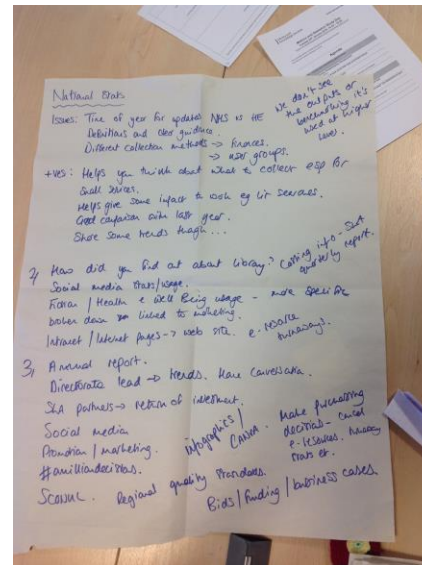 National Stats
Issues: Time of year for updates NHS vs HE
Definitions and clear guidance.
Different collection methods → finances.
→ user groups.
We don't see
the outputs or
benchmarking it's
used at higher
level.
+ves: Helps you think about what to collect esp for
small services.
Helps give some impact to work eg lit searches.
Good comparison with last year.
Show some trends though...
2, How did you find out about library? Costing info - Short
quarterly report.
Social media stats/usage.
Fiction / Health & Well Being usage - more specific
broken down linked to marketing.
Intranet / Internet pages → web site. e-resource
turnaways.
3, Annual report.
Directorate lead → trends. Have conversation.
SLA partners → return of investment.
Social media
Promotion / marketing.
#amilliondecisions.
infographics /
CANVA.
Make purchasing
decisions - cancel
e-resources.
SCONUL. Regional quality standards.
Bids / funding / business cases